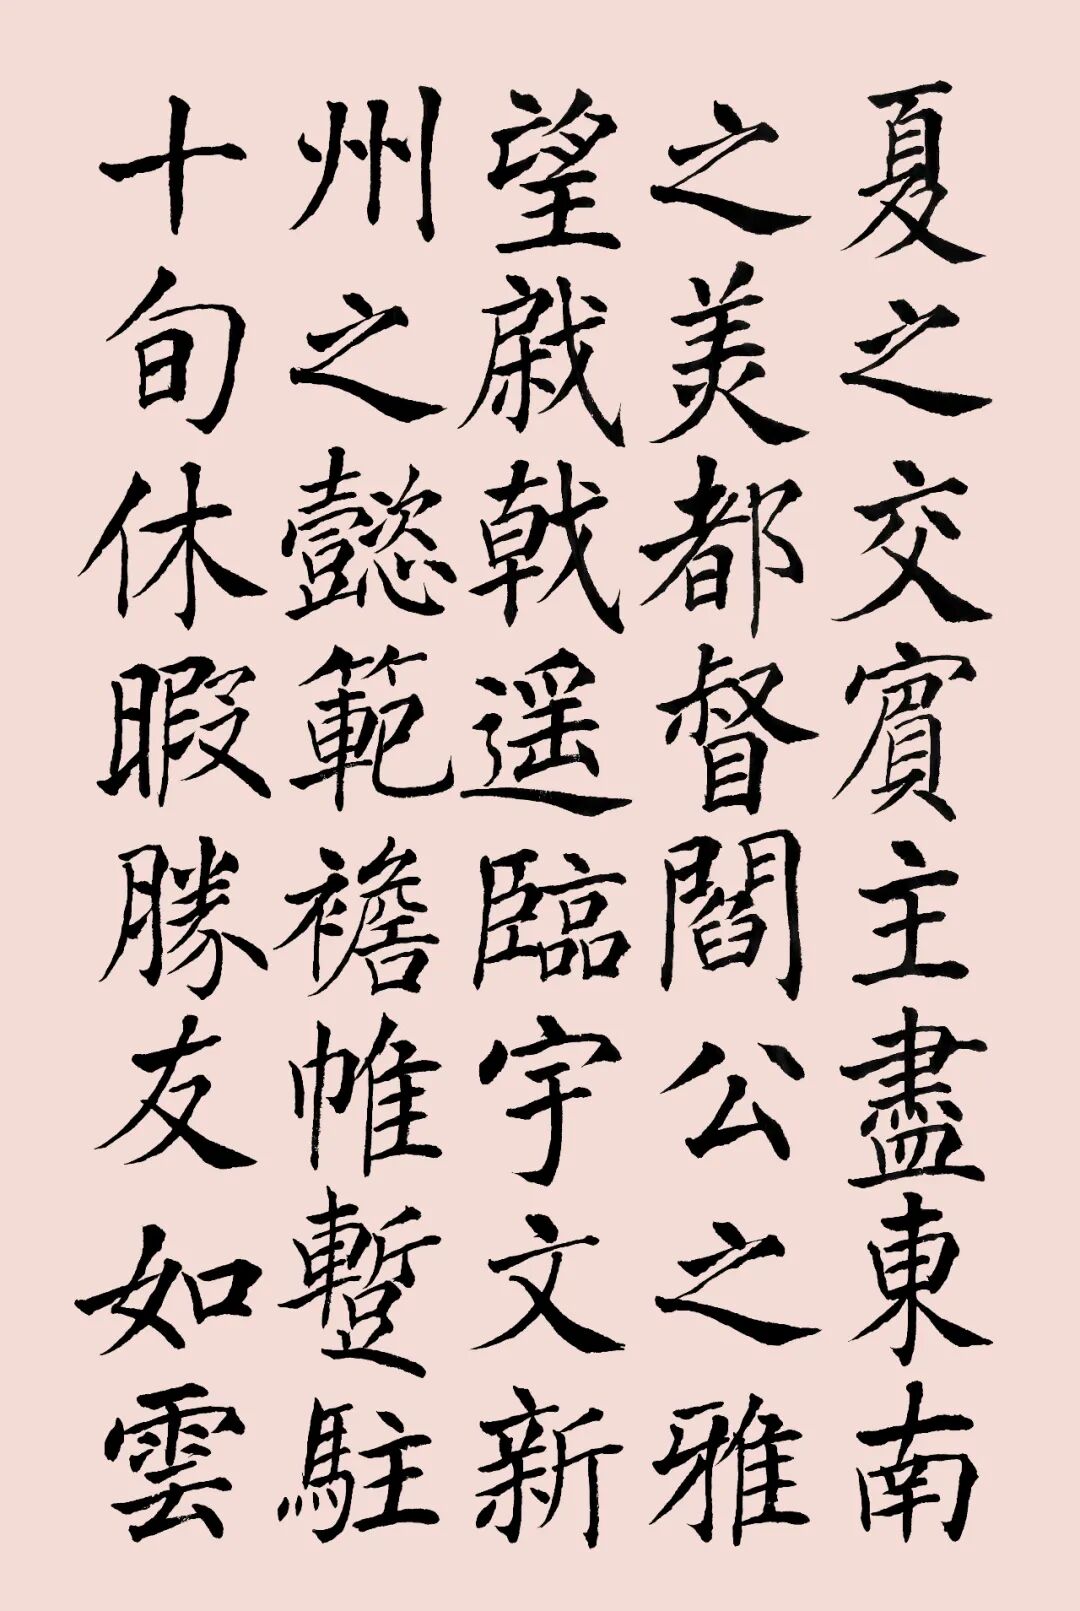 夏之交賓主盡東南
之美都督閻公之雅
望戚戟遥臨宇文新
州之懿範襜帷蹔駐
十旬休暇勝友如雲